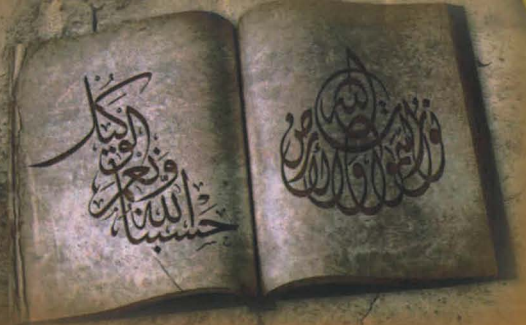 الله نور السموات والأرض
حسبنا الله ونعم الوكيل